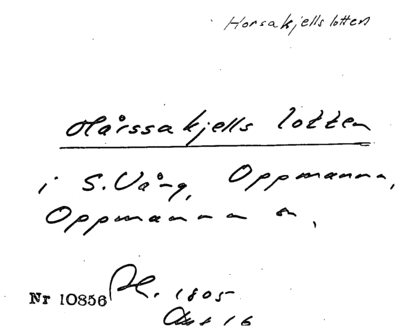 Horsakjellslotten
Hårssakjells lotten
i S. Vång, Oppmanna,
Oppmanna sn,
Nr 10856 Bl. 1805
Akt 16